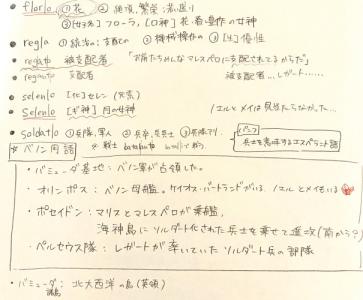 • floro ① 花 ② 絶頂、繁栄、若盛り
[女性名] フローラ、[ロ神] 花・春・豊作の女神
• regla ① 統治の；支配の ② 機械操作の ③ [生] 優性
• regato 被支配者 「お前たちみんなマレスペロに支配されてるからだ」
reganto 支配者 被支配者…レガート……
• selenlo [化] セレン (元素)
• Seleno [ギ神] 月の女神 ノエルとメイは見当たらなかった…
• soldatlo ① 兵隊、軍人 ② 兵卒、兵士 ③ 兵隊アリ
兵士を意味するエスペラント語
※ ベノン用語
・バミューダ基地：ベノン軍が占領した。
・オリンポス：ベノン母艦。ケイオス・バートランドがいる。ノエルとメイもいる
・ポセイドン：マリスとマレスペロが乗艦。
海神島にソルダート化された兵士を乗せて進次(前から?)
・ペルセウス隊：レガートが率いていたソルダート兵の部隊
・バミューダ諸島：北大西洋の島(英領)